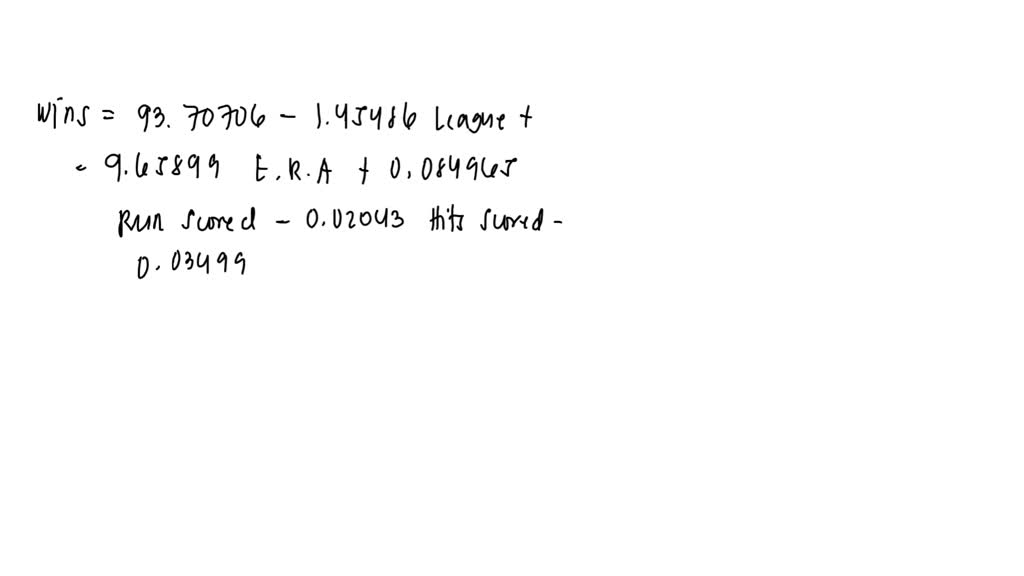 Wins = 93.70706 - 1.45486 League +
- 9.65899 E.R.A + 0.084965
Run scored - 0.02043 Hits scored -
0.03499